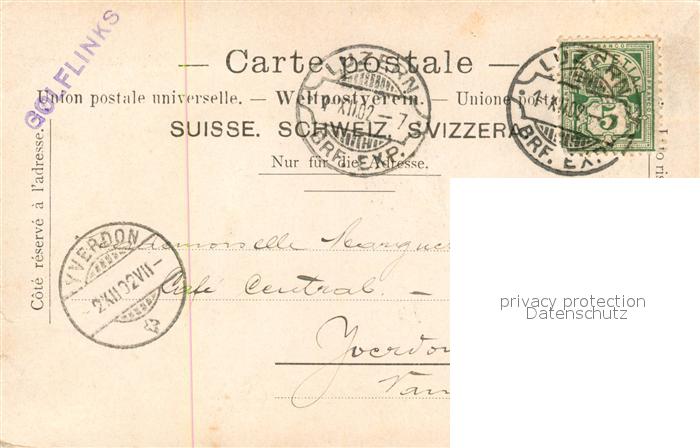 GOLFLINKS
Carte postale
Union postale universelle. — Weltpostverein. — Unione post
SUISSE. SCHWEIZ. SVIZZERA
Nur für die Adresse.
Côté réservé à l'adresse.
LUZERN
XII.02 – 7
BRF. EXP.
LUZERN
BRF. EXP.
FRANCO
5
YVERDON
2 XII 02 VII –
Mademoiselle Margue
Café Central. –
Yverdon
Vau
privacy protection
Datenschutz